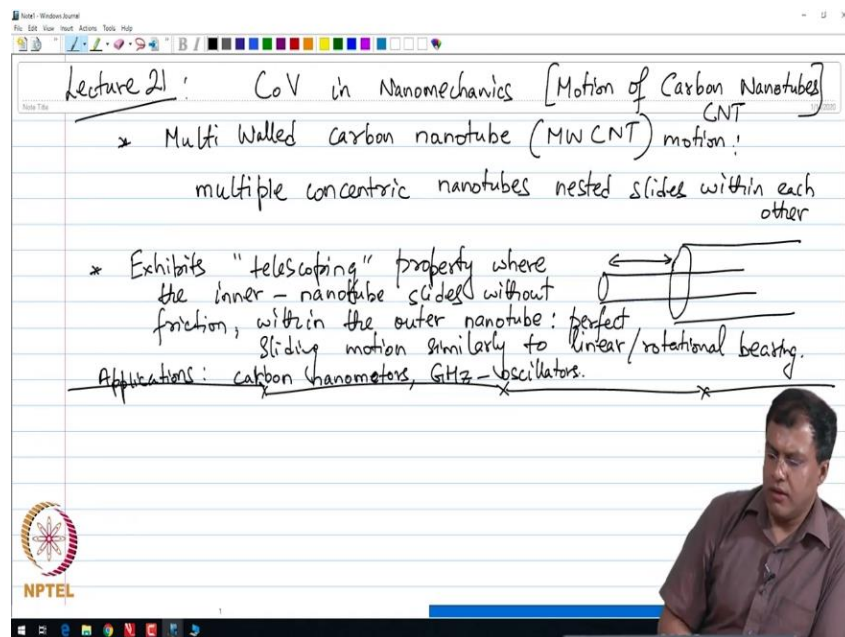 Note1 - Windows Journal
File Edit View Insert Actions Tools Help
Lecture 21 : CoV in Nanomechanics [Motion of Carbon Nanotubes]
CNT
Note Title
* Multi Walled carbon nanotube (MWCNT) motion :
multiple concentric nanotubes nested slides within each
other
* Exhibits "telescoping" property where
the inner-nanotube slides without
friction, within the outer nanotube : perfect
sliding motion similarly to linear/rotational bearing.
Applications : carbon nanomotors, GHz-oscillators.
NPTEL
1